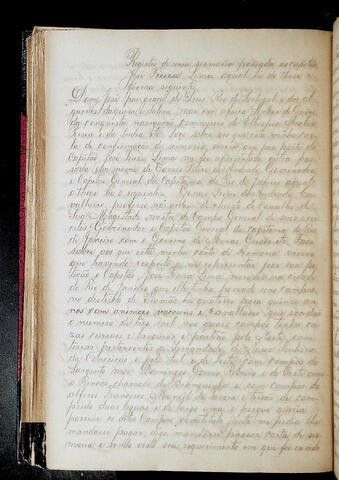 Registro de uma sesmaria passada ao Capitão
José Lima a qual é do theor e
forma seguinte
Dom José por graça de Deus Rei de Portugal e dos Al-
garves daquem e dalem mar em Africa Senhor de Guiné
da conquista navegação commercio de Ethiopia Arabia
Persia e da India etc. Faço saber aos que esta minha car-
ta de confirmação de sesmaria virem que por parte do
Capitão José Lima me foi apresentada outra pas-
sada em nome de Gomes Freire de Andrada Governador
e Capitão General da Capitania do Rio de Janeiro da qual
o theor é o seguinte Gomes Freire de Andrada
Sua Magestade Mestre de Campo General de seus exer-
citos Governador e Capitão General da capitania do Rio
de Janeiro com o Governo de Minas Geraes etc. Faço
saber aos que esta minha carta de sesmaria virem
que havendo respeito a representar por sua pe-
tição o Capitão José Lima morador na cidade
do Rio de Janeiro que elle tinha povoado uns campos
no districto de Viamão ha quatorze para quinze an-
nos com animaes vaccuns e cavallares que excedião
o numero de dez mil nos quaes campos tinha ca-
zas curraes e lavouras e partião pelo Norte com
terras pertencentes a Fernandes e Nossa Senhora
da Conceição e pelo Sul e de Leste com campos do
Sargento mor Domingos Gomes Ribeiro e do Oeste com
o Rincão chamado da e com campos do
alferes Francisco Manoel de e terião de com-
prido duas leguas e de largo uma e porque queria
possuir os ditos campos com titulo justo me pedia lhe
mandasse passar, digo mandasse passar carta de ses-
maria e sendo visto seu requerimento em que foi ouvido